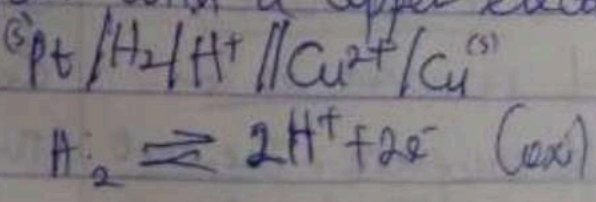 (s)Pt/H₂/H⁺//Cu²⁺/Cu(s)
H₂ ⇌ 2H⁺+2e⁻ (oxi)